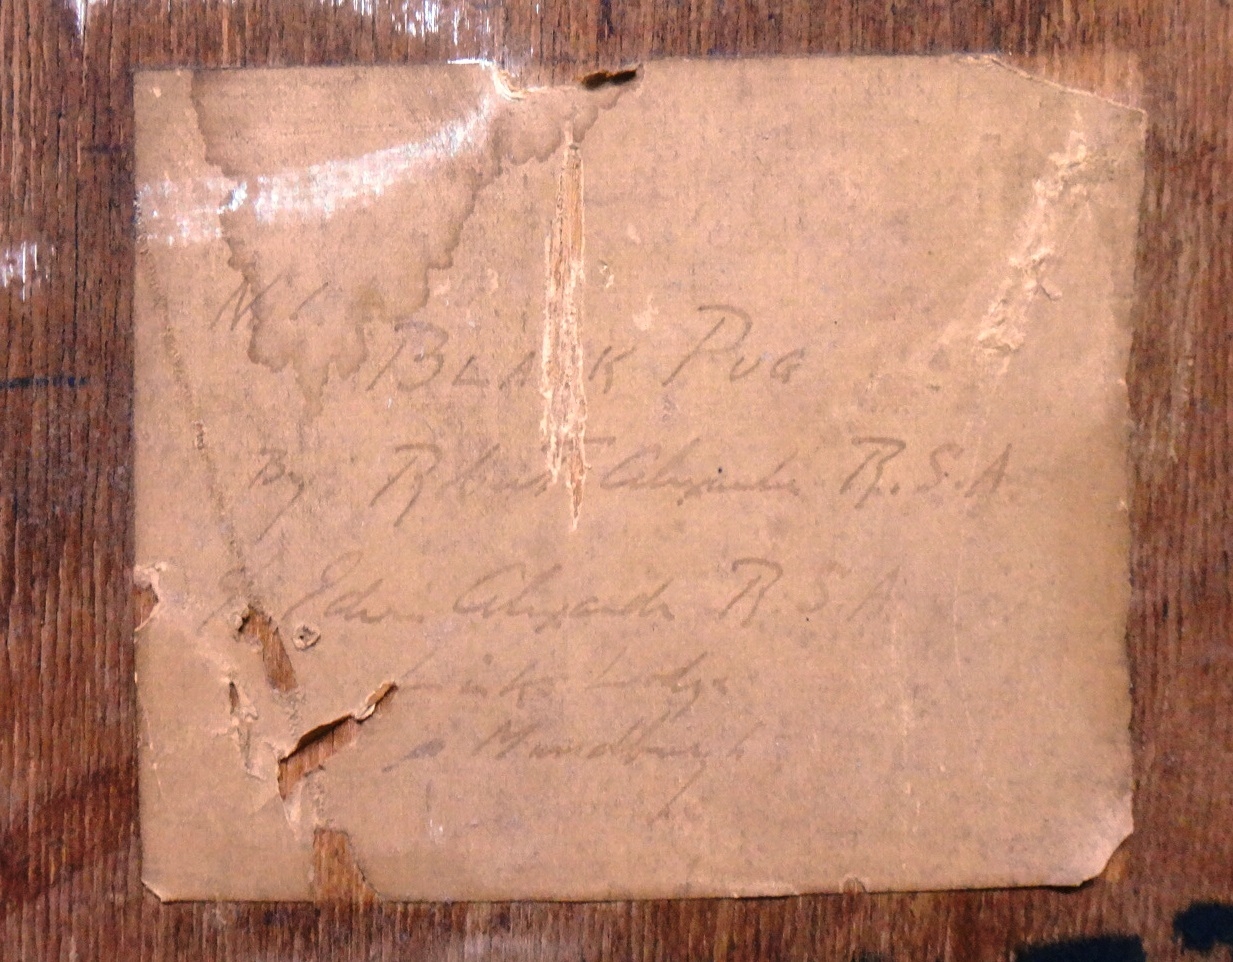 No 1
BLACK PUG
By Robert Alexander R.S.A.
Edwin Alexander R.S.A
Links Lodge
Musselburgh